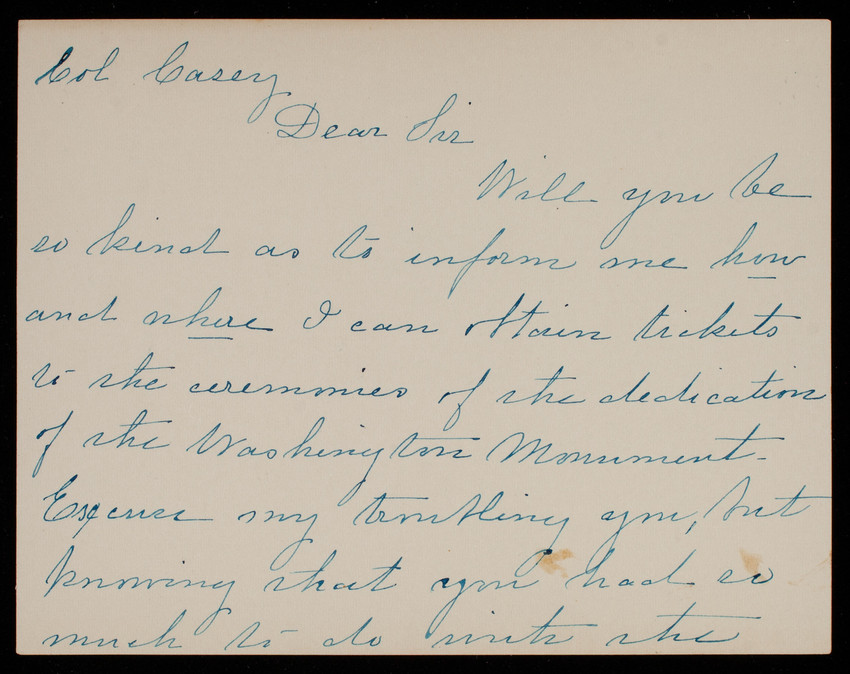 Col Casey
Dear Sir
Will you be
so kind as to inform me how
and where I can obtain tickets
to the ceremonies of the dedication
of the Washington Monument.
Excuse my troubling you, but
knowing that you had so
much to do with the